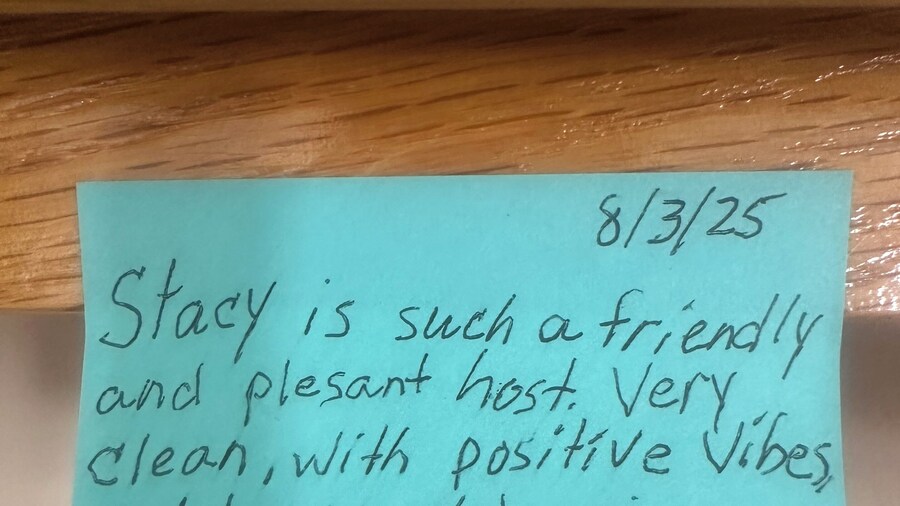 8/3/25
Stacy is such a friendly
and plesant host. Very
clean, with positive Vibes,